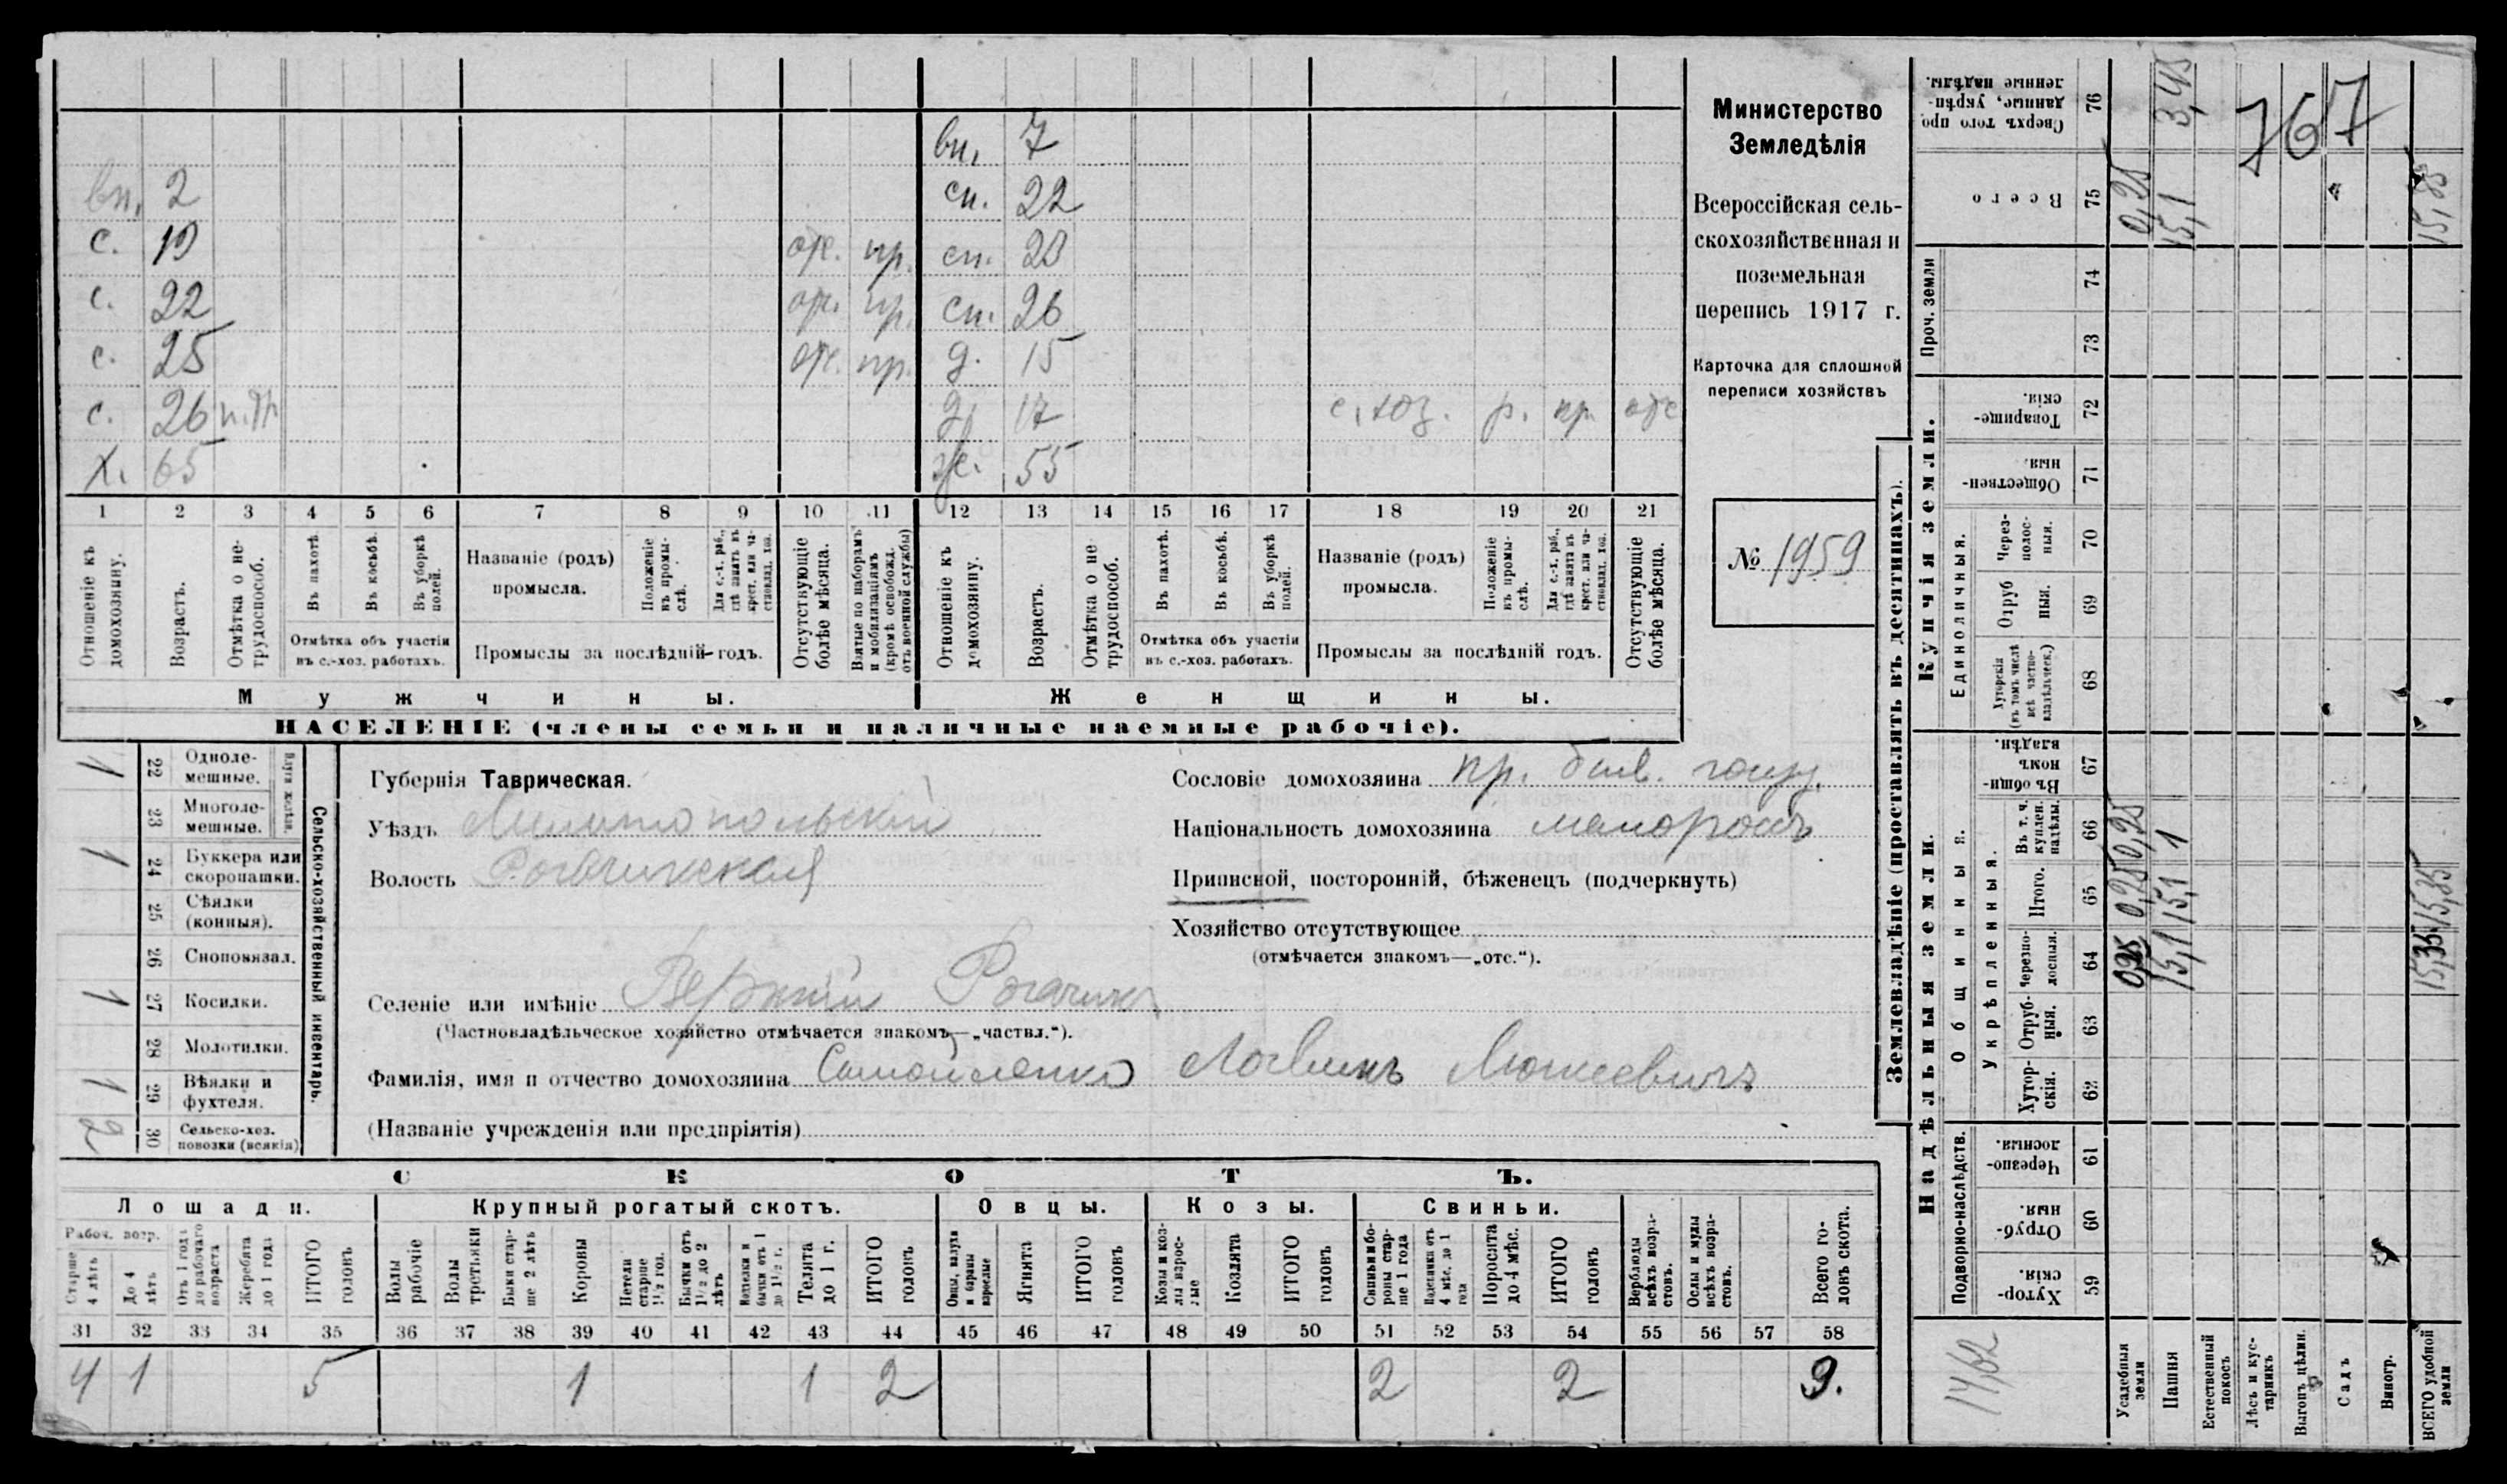 вн. 7
вн. 2 сн. 22
с. 19 отс. пр. сн. 23
с. 22 отс. пр. сн. 26
с. 25 отс. пр. д. 15
с. 26 д. 17 с. хоз. р. кр отс
х. 65 ж. 55
1 2 3 4 5 6 7 8 9 10 11 12 13 14 15 16 17 18 19 20 21
Отношеніе къ домохозяину.
Возрастъ.
Отмѣтка о не-трудоспособ.
Въ пахотѣ.
Въ косьбѣ.
Въ уборкѣ полей.
Отмѣтка объ участіи
въ с.-хоз. работахъ.
Названіе (родъ)
промысла.
Положеніе въ промы-слѣ.
Для с.-х. раб., гдѣ занятъ въ крест. или ча-стновлад. хоз.
Промыслы за послѣдній годъ.
Отсутствующіе болѣе мѣсяца.
Взятые по наборамъ и мобилизаціямъ (кромѣ освобожд. отъ военной службы)
Отношеніе къ домохозяину.
Возрастъ.
Отмѣтка о не трудоспособ.
Въ пахотѣ.
Въ косьбѣ.
Въ уборкѣ полей.
Отмѣтка объ участіи
въ с.-хоз. работахъ.
Названіе (родъ)
промысла.
Положеніе въ промы-слѣ.
Для с.-х. раб., гдѣ занятъ въ крест. или ча-стновлад. хоз.
Промыслы за послѣдній годъ.
Отсутствующіе болѣе мѣсяца.
Мужчины.
Женщины.
НАСЕЛЕНІЕ (члены семьи и наличные наемные рабочіе).
Министерство
Земледѣлія
Всероссійская сель-
скохозяйственная и
поземельная
перепись 1917 г.
Карточка для сплошной
переписи хозяйствъ
№ 1959
Сельско-хозяйственный инвентарь.
Плуги желѣзн.
1 22 Одноле-мешные.
23 Многоле-мешные.
1 24 Буккера или скоропашки.
25 Сѣялки (конныя).
26 Сноповязал.
1 27 Косилки.
28 Молотилки.
1 29 Вѣялки и фухтеля.
2 30 Сельско-хоз. повозки (всякія)
Губернія Таврическая.
Уѣздъ Мелитопольскій
Волость Рогачикская
Сословіе домохозяина кр. быв. госуд.
Національность домохозяина малороссъ
Приписной, посторонній, бѣженецъ (подчеркнуть)
Хозяйство отсутствующее
(отмѣчается знакомъ—„отс.“).
Селеніе или имѣніе Верхній Рогачикъ
(Частновладѣльческое хозяйство отмѣчается знакомъ—„частвл.“).
Фамилія, имя и отчество домохозяина Самойленко Логвинъ Моисеевичъ
(Названіе учрежденія или предпріятія)
СКОТЪ.
Лошади. Крупный рогатый скотъ. Овцы. Козы. Свиньи.
Рабоч. возр.
Старше 4 лѣтъ
До 4 лѣтъ
Отъ 1 года до рабочаго возраста
Жеребята до 1 года
ИТОГО головъ
Волы рабочіе
Волы третьяки
Быки стар-ше 2 лѣтъ
Коровы
Нетели старше 1½ год.
Бычки отъ 1½ до 2 лѣтъ
Нетелки и бычки отъ 1 до 1½ г.
Телята до 1 г.
ИТОГО головъ
Овцы, валухи и бараны взрослые
Ягнята
ИТОГО головъ
Козы и коз-лы взрос-лые
Козлята
ИТОГО головъ
Свиньи и бо-ровы стар-ше 1 года
Подсвинки отъ 4 мѣс. до 1 года
Поросята до 4 мѣс.
ИТОГО головъ
Верблюды всѣхъ возра-стовъ.
Ослы и мулы всѣхъ возра-стовъ.
Всего го-ловъ скота.
31 32 33 34 35 36 37 38 39 40 41 42 43 44 45 46 47 48 49 50 51 52 53 54 55 56 57 58
4 1 5 1 1 2 2 2 9.
Землевладѣніе (проставлять въ десятинахъ).
Надѣльныя земли.
Купчія земли.
Проч. земли
Подворно-наслѣдств.
Общинныя.
Укрѣпленныя.
Единоличныя.
Сверхъ того про данные, укрѣп-ленные надѣлы. 76 3,45
Всего 75 0,25 15,1 15,35
74
73
Товарище-скія. 72
Обществен-ныя. 71
Через-полос-ныя. 70
Отруб ныя. 69
Хуторскія (въ томъ числѣ всѣ частно-владѣльческ.) 68
Въ общи-номъ владѣн. 67
Въ т. ч. куплен. надѣлы. 66 0,25 1
Итого. 65 0,25 15,1 15,35
Черезпо-лосныя. 64 0,25 15,1 15,35
Отруб-ныя. 63
Хутор-скія. 62
Черезпо-лосныя. 61
Отруб-ныя. 60
Хутор-скія. 59
14,62
Усадебныя земли
Пашня
Естественный покосъ
Лѣсъ и кус-тарникъ
Выгонъ цѣлин.
Садъ
Виногр.
ВСЕГО удобной земли
767